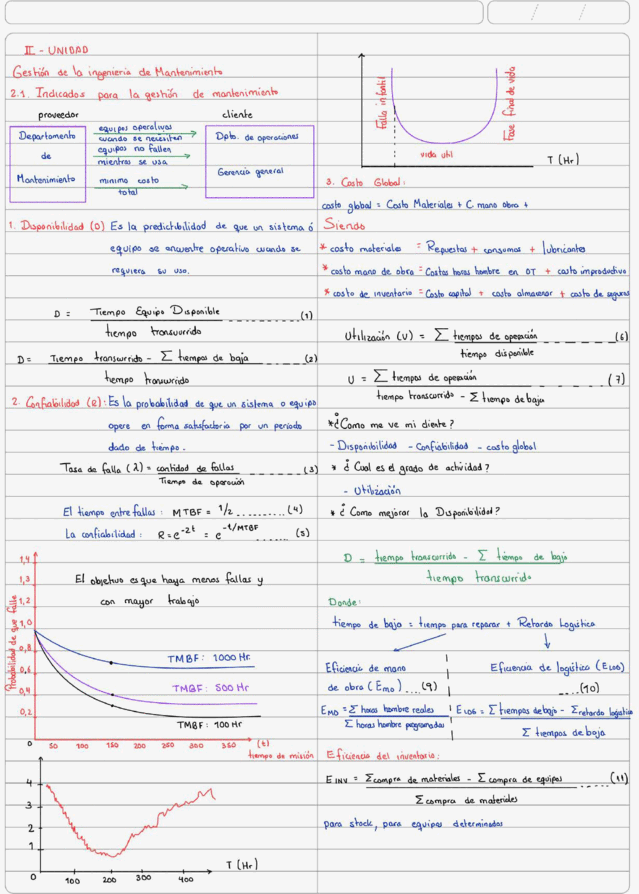 II - UNIDAD
Gestión de la ingenieria de Mantenimiento
2.1. Indicados para la gestión de mantenimiento
proveedor cliente
Departamento
de
Mantenimiento
equipos operativos
cuando se necesiten
equipos no fallen
mientras se usa
minimo costo
total
Dpto. de operaciones
Gerencia general
1. Disponibilidad (D) Es la predictibilidad de que un sistema ó
equipo se encuentre operativo cuando se
requiera su uso.
D = Tiempo Equipo Disponible (1)
tiempo transcurrido
D = Tiempo transcurrido - Σ tiempos de baja (2)
tiempo transcurrido
2. Confiabilidad (R): Es la probabilidad de que un sistema o equipo
opere en forma satisfactoria por un periodo
dado de tiempo.
Tasa de falla (λ) = cantidad de fallas (3)
Tiempo de operación
El tiempo entre fallas : MTBF = 1/2 .......... (4)
La confiabilidad : R = e^-2t = e^-t/MTBF ........ (5)
1,4
1,3
1,2
1,0
0,8
0,6
0,4
0,2
Probabilidad de que falle
El objetivo es que haya menos fallas y
con mayor trabajo
TMBF: 1000 Hr
TMBF: 500 Hr
TMBF: 100 Hr
0 50 100 150 200 250 300 350 (t)
tiempo de misión
4
3
2
1
0 100 200 300 400
T (Hr)
Falla infantil
vida util
Fase final de vida
T (Hr)
3. Costo Global:
costo global = Costo Materiales + C mano obra +
Siendo
* costo materiales = Repuestos + consumos + lubricantes
* costo mano de obra = Costos horas hombre en OT + costo improductivo
* costo de inventario = Costo capital + costo almacenar + costo de seguros
Utilización (U) = Σ tiempos de operación (6)
tiempo disponible
U = Σ tiempos de operación (7)
tiempo transcurrido - Σ tiempo de baja
* ¿Como me ve mi cliente?
- Disponibilidad - Confiabilidad - costo global
* ¿ Cual es el grado de actividad?
- Utilización
* ¿ Como mejorar la Disponibilidad?
D = tiempo transcorrido - Σ tiempo de bajo
tiempo transcurrido
Donde:
tiempo de baja = tiempo para reparar + Retardo Logistico
Eficiencia de mano
de obra (E MO) .... (9)
E MO = Σ horas hombre reales
Σ horas hombre programadas
Eficiencia de logística (E LOG)
.... (10)
E LOG = Σ tiempos de bajo - Σ retardo logistico
Σ tiempos de baja
Eficiencia del inventario:
E INV = Σ compra de materiales - Σ compra de equipos (11)
Σ compra de materiales
para stock, para equipos determinados